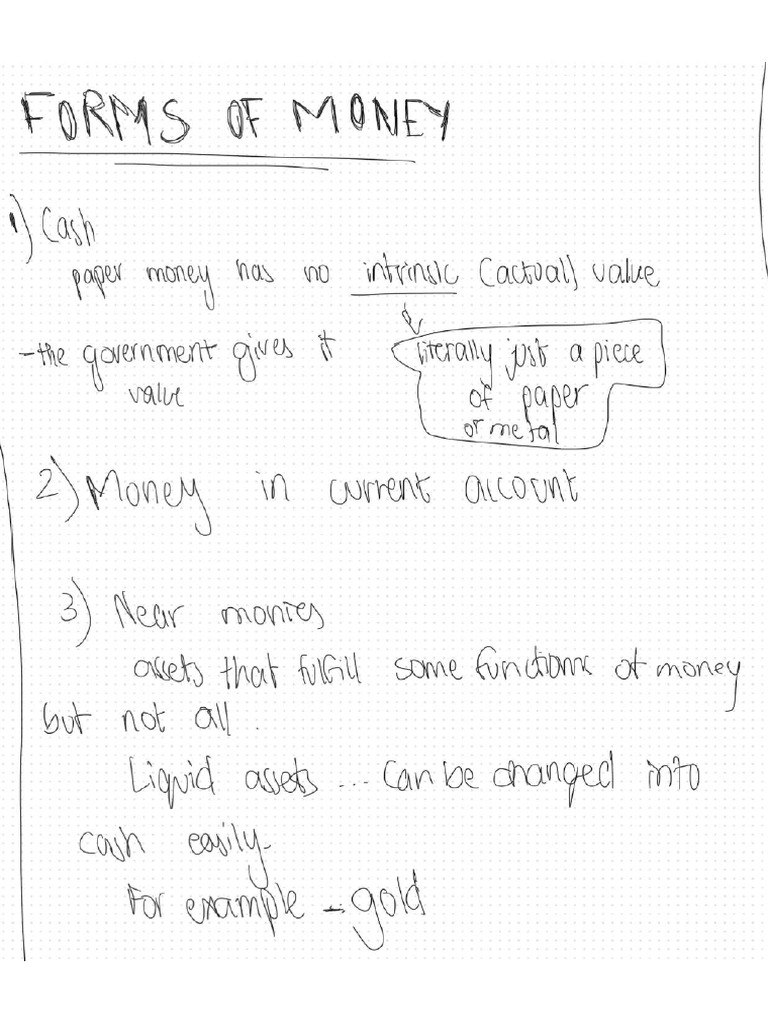 FORMS OF MONEY
1) Cash
paper money has no intrinsic (actual) value
- the government gives it
value
literally just a piece
of paper
or metal
2) Money in current account
3) Near monies
assets that fulfill some functions of money
but not all.
Liquid assets ... can be changed into
cash easily.
For example - gold